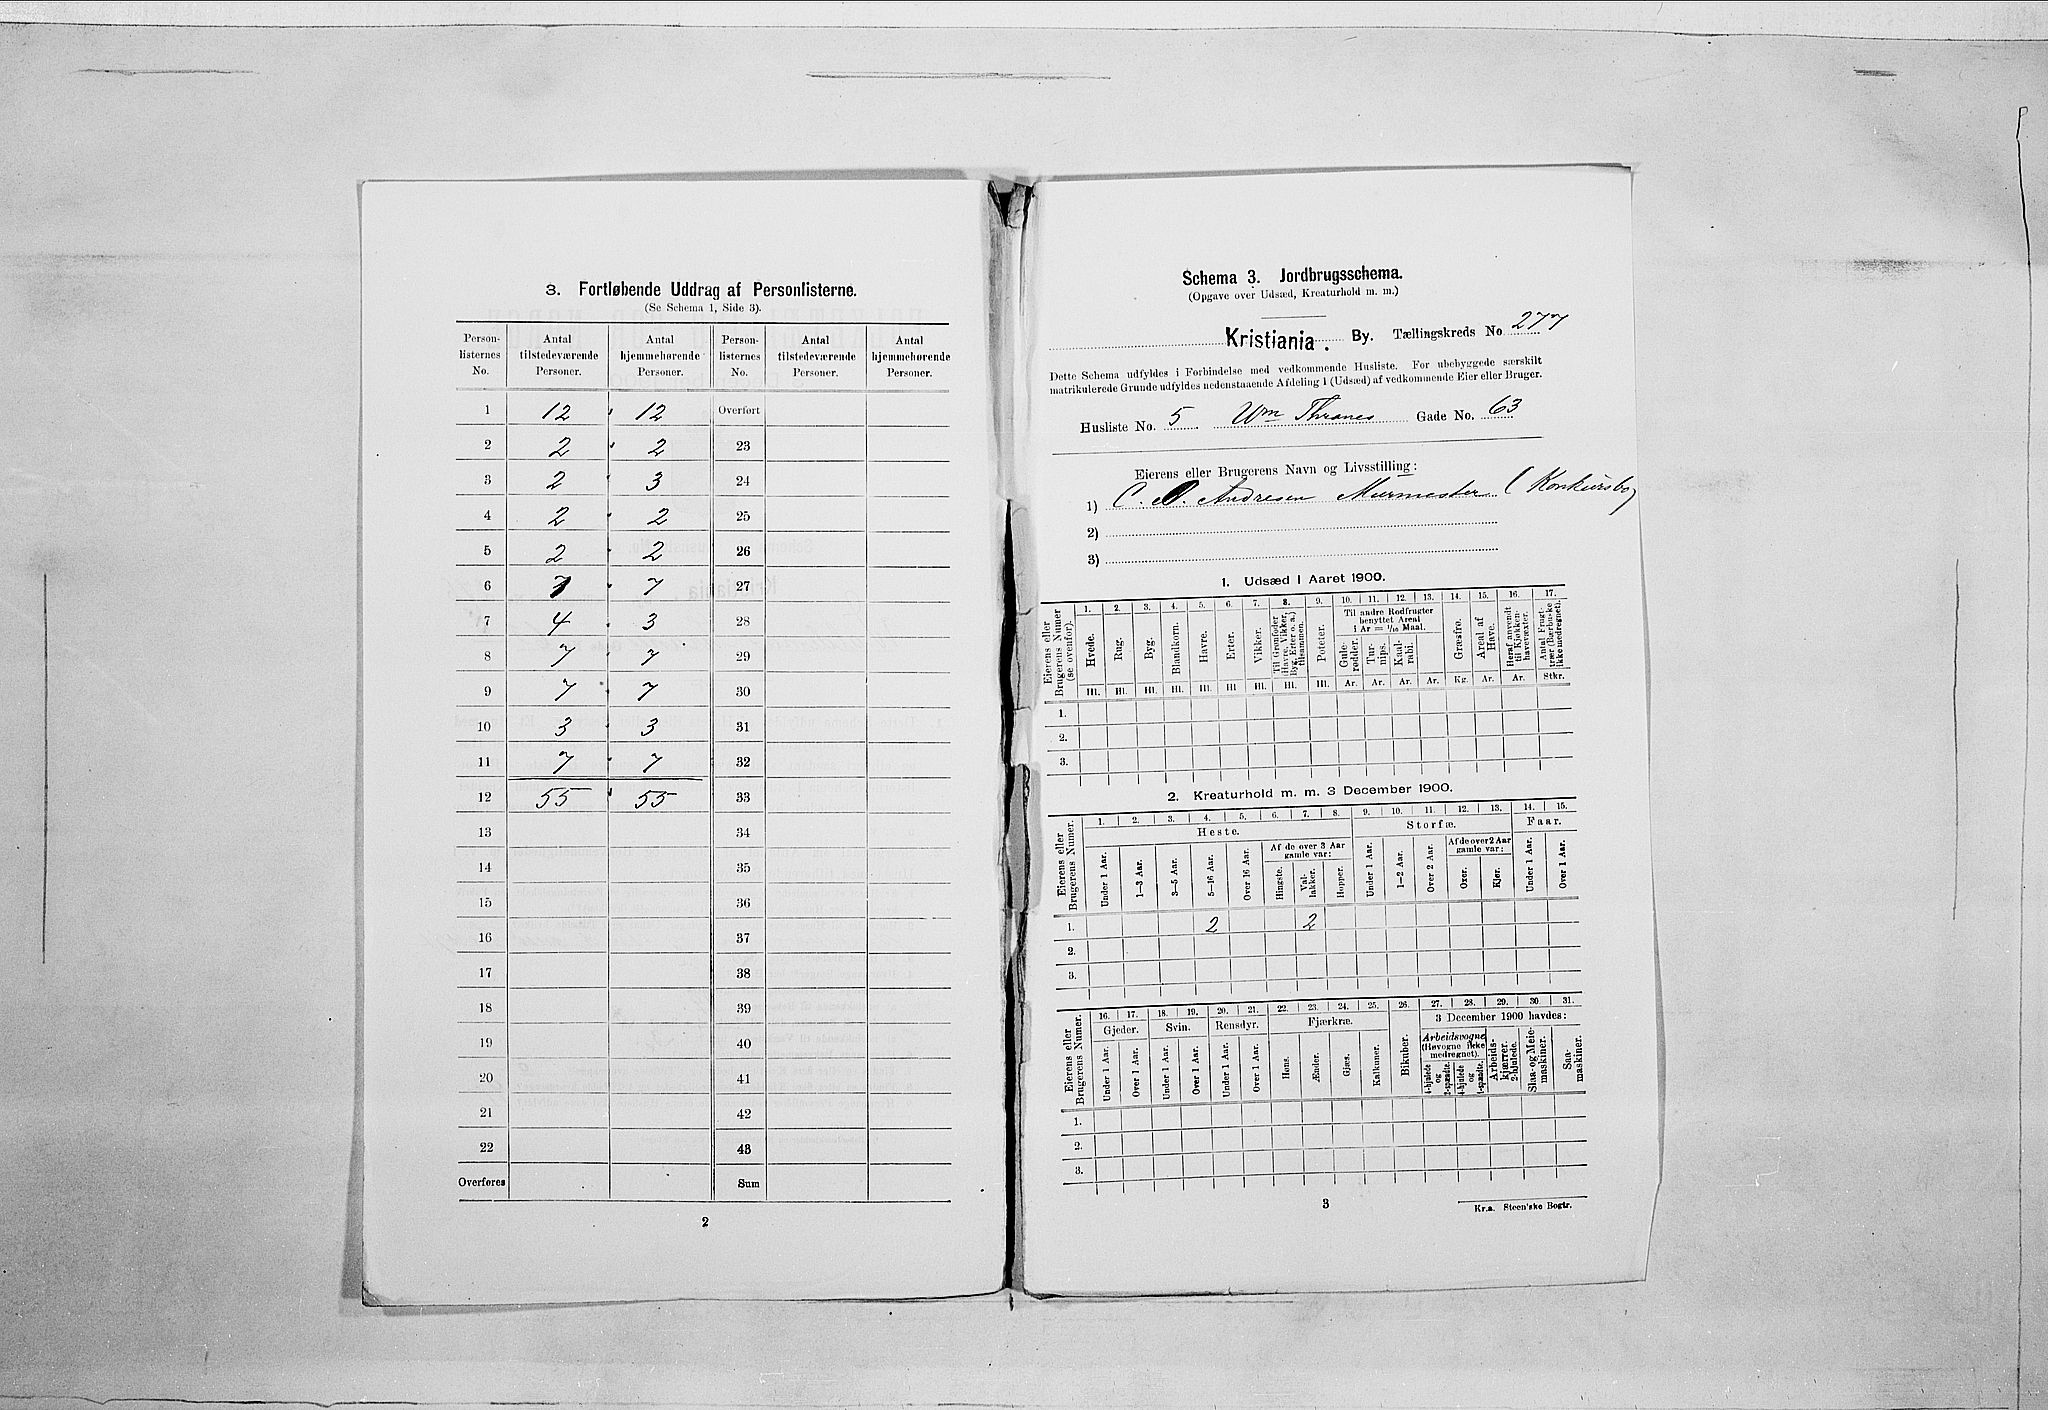 3. Fortløbende Uddrag af Personlisterne.
(Se Schema 1, Side 3).
Person-listernes No. | Antal tilstedeværende Personer. | Antal hjemmehørende Personer. | Person-listernes No. | Antal tilstedeværende Personer. | Antal hjemmehørende Personer.
1 12 12 Overført
2 2 2 23
3 2 3 24
4 2 2 25
5 2 2 26
6 7 7 27
7 4 3 28
8 7 7 29
9 7 7 30
10 3 3 31
11 7 7 32
12 55 55 33
13 34
14 35
15 36
16 37
17 38
18 39
19 40
20 41
21 42
22 43
Overføres Sum
2
Schema 3. Jordbrugsschema.
(Opgave over Udsæd, Kreaturhold m. m.)
Kristiania. By. Tællingskreds No 277
Dette Schema udfyldes i Forbindelse med vedkommende Husliste. For ubebyggede særskilt
matrikulerede Grunde udfyldes nedenstaaende Afdeling 1 (Udsæd) af vedkommende Eier eller Bruger.
Husliste No. 5 Wm Thranes Gade No. 63
Eierens eller Brugerens Navn og Livsstilling:
1) C. Andresen Murmester (Konkursbo)
2)
3)
1. Udsæd i Aaret 1900.
Eierens eller Brugerens Numer (se ovenfor).
1. 2. 3. 4. 5. 6. 7. 8. 9. 10. 11. 12. 13. 14. 15. 16. 17.
Til andre Rodfrugter benyttet Areal 1 Ar = 1/10 Maal.
Hvede. Rug. Byg. Blandkorn. Havre. Erter. Vikker. Til Grønfoder (Havre, Vikker, Byg, Erter o. a.) tilsammen. Poteter. Gule-rødder. Tur-nips. Kaal-rabi. Græsfrø. Areal af Have. Heraf anvendt til Kjøkken-havevæxter. Antal Frugt-trær (Bærbuske ikke medregnet).
Hl. Hl. Hl. Hl. Hl. Hl. Hl. Hl. Hl. Ar. Ar. Ar. Ar. Kg. Ar. Ar. Stkr.
1.
2.
3.
2. Kreaturhold m. m. 3 December 1900.
Eierens eller Brugerens Numer.
1. 2. 3. 4. 5. 6. 7. 8. 9. 10. 11. 12. 13. 14. 15.
Heste. Storfæ. Faar.
Af de over 3 Aar gamle var: Af de over 2 Aar gamle var:
Under 1 Aar. 1—3 Aar. 3—5 Aar. 5—16 Aar. Over 16 Aar. Hingste. Val-lakker. Hopper. Under 1 Aar. 1—2 Aar. Over 2 Aar. Oxer. Kjør. Under 1 Aar. Over 1 Aar.
1. 2 2
2.
3.
Eierens eller Brugerens Numer.
16. 17. 18. 19. 20. 21. 22. 23. 24. 25. 26. 27. 28. 29. 30. 31.
Gjeder. Svin. Rensdyr. Fjærkræ. Bikuber. 3 December 1900 havdes:
Arbeidsvogne (Høvogne ikke medregnet).
Under 1 Aar. Over 1 Aar. Under 1 Aar. Over 1 Aar. Under 1 Aar. Over 1 Aar. Høns. Ænder. Gjæs. Kalkuner. 4-hjulede og 2-spændte. 4-hjulede og 1-spændte. Arbeids-kjærrer, 2-hjulede. Slaa- og Meie-maskiner. Saa-maskiner.
1.
2.
3.
3
Kr.a. Steen'ske Bogtr.